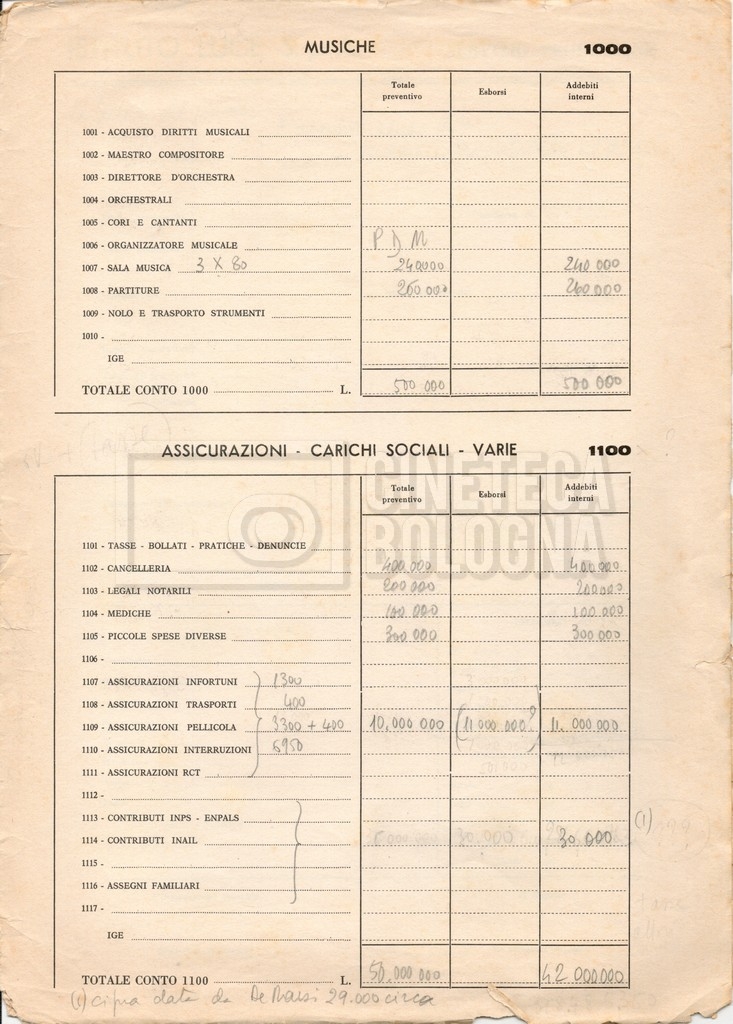 MUSICHE 1000
Totale preventivo Esborsi Addebiti interni
1001 - ACQUISTO DIRITTI MUSICALI
1002 - MAESTRO COMPOSITORE
1003 - DIRETTORE D'ORCHESTRA
1004 - ORCHESTRALI
1005 - CORI E CANTANTI
1006 - ORGANIZZATORE MUSICALE P D M
1007 - SALA MUSICA 3 X 80 240000 240 000
1008 - PARTITURE 260 000 260 000
1009 - NOLO E TRASPORTO STRUMENTI
1010 -
IGE
TOTALE CONTO 1000 L. 500 000 500 000
ASSICURAZIONI - CARICHI SOCIALI - VARIE 1100
CINETECA
BOLOGNA
Totale preventivo Esborsi Addebiti interni
1101 - TASSE - BOLLATI - PRATICHE - DENUNCIE
1102 - CANCELLERIA 400.000 400.000
1103 - LEGALI NOTARILI 200 000 200000
1104 - MEDICHE 100 000 100 000
1105 - PICCOLE SPESE DIVERSE 300 000 300 000
1106 -
1107 - ASSICURAZIONI INFORTUNI 1300
1108 - ASSICURAZIONI TRASPORTI 400
1109 - ASSICURAZIONI PELLICOLA 3300 + 400 10,000 000 (11 000 000?) 11. 000000
1110 - ASSICURAZIONI INTERRUZIONI 5950
1111 - ASSICURAZIONI RCT
1112 -
1113 - CONTRIBUTI INPS - ENPALS (1)
1114 - CONTRIBUTI INAIL 30.000 30 000
1115 -
1116 - ASSEGNI FAMILIARI
1117 -
IGE
TOTALE CONTO 1100 L. 50.000 000 42 000000
(1) data da 29.000 circa